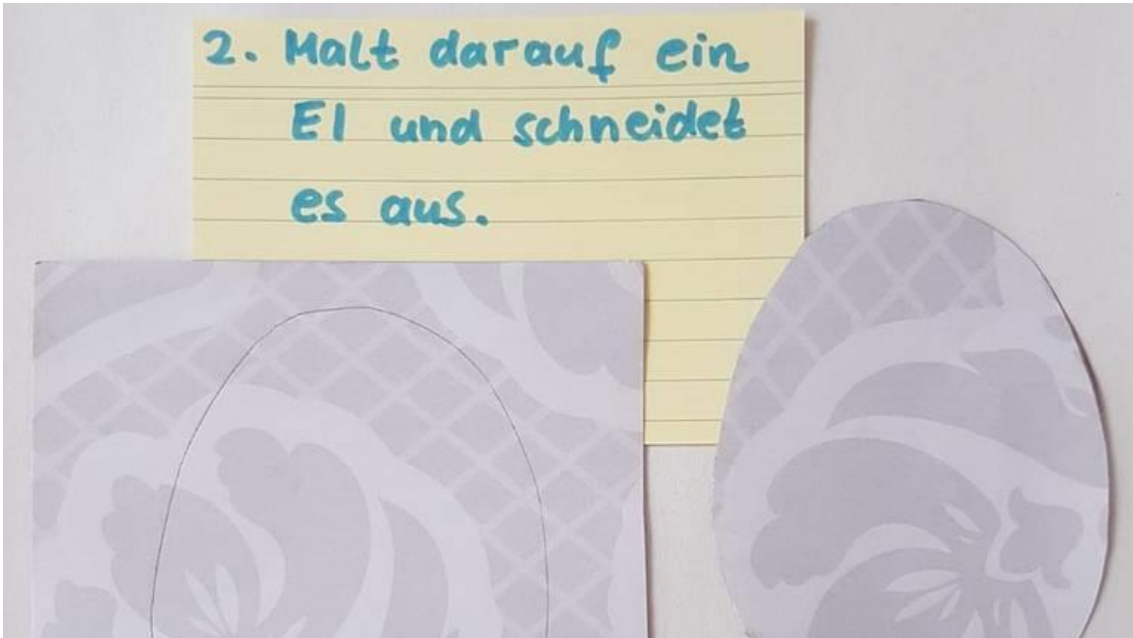 2. Malt darauf ein
EI und schneidet
es aus.